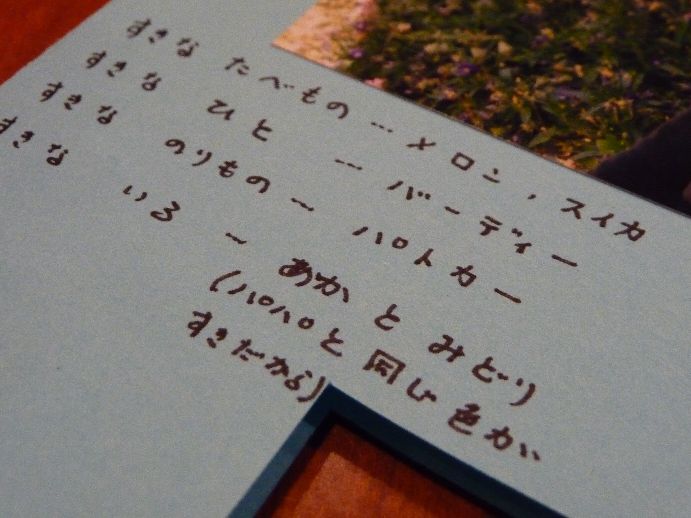 すきな たべもの … メロン, スイカ
すきな ひと … バーディー
すきな のりもの … パトカー
すきな いろ … あか と みどり
(パパと 同じ 色が
すきだから)